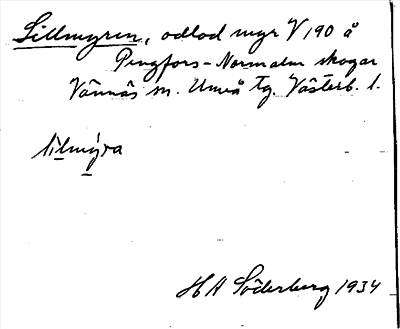 Sillmyren, odlad myr V 190 å
Pengfors-Norrmalm skogar
Vännäs sn. Umeå tg. Västerb. l.
silmýra
H A Söderberg 1934